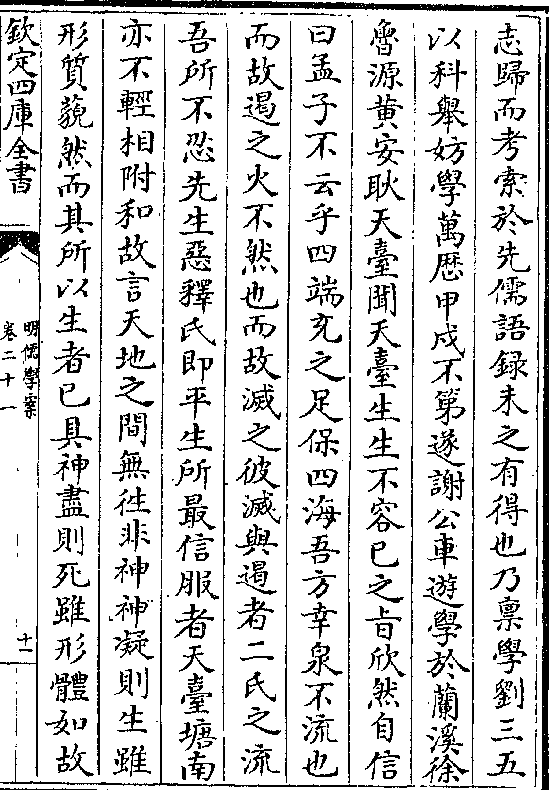 志歸而考索於先儒語録未之有得也乃禀學劉三五
以科舉妨學萬歴甲戌不第遂謝公車遊學於蘭溪徐
魯源黄安耿天臺聞天臺生生不容已之旨欣然自信
曰孟子不云乎四端充之足保四海吾方幸泉不流也
而故遏之火不然也而故滅之彼滅與遏者二氏之流
吾所不忍先生惡釋氏即平生所最信服者天臺塘南
亦不輕相附和故言天地之間無徃非神神凝則生雖
形質藐然而其所以生者已具神盡則死雖形體如故
欽定四庫全書
明儒學案
卷二十一
十一